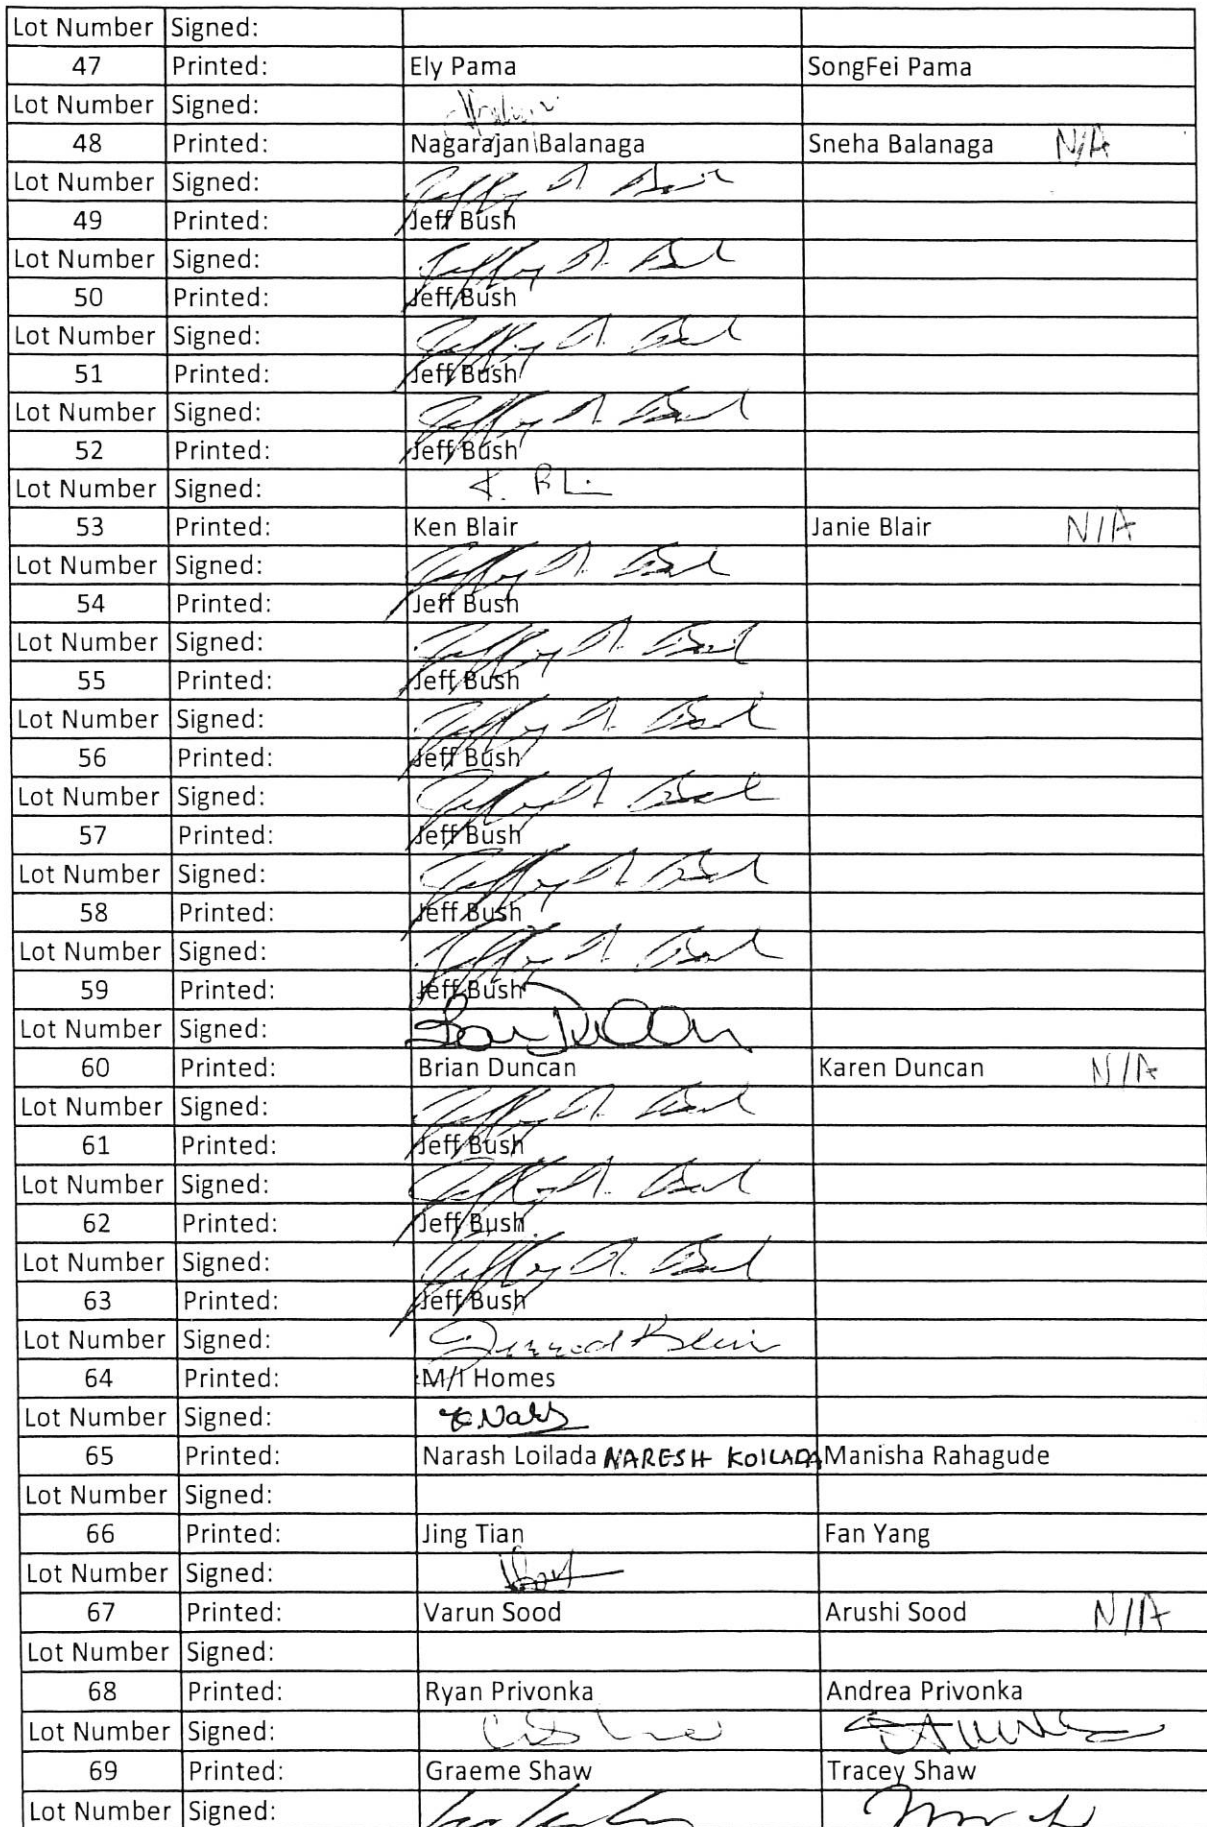 Lot Number Signed:
47 Printed: Ely Pama SongFei Pama
Lot Number Signed:
48 Printed: Nagarajan Balanaga Sneha Balanaga N/A
Lot Number Signed:
49 Printed: Jeff Bush
Lot Number Signed:
50 Printed: Jeff Bush
Lot Number Signed:
51 Printed: Jeff Bush
Lot Number Signed:
52 Printed: Jeff Bush
Lot Number Signed:
53 Printed: Ken Blair Janie Blair N/A
Lot Number Signed:
54 Printed: Jeff Bush
Lot Number Signed:
55 Printed: Jeff Bush
Lot Number Signed:
56 Printed: Jeff Bush
Lot Number Signed:
57 Printed: Jeff Bush
Lot Number Signed:
58 Printed: Jeff Bush
Lot Number Signed:
59 Printed: Jeff Bush
Lot Number Signed:
60 Printed: Brian Duncan Karen Duncan N/A
Lot Number Signed:
61 Printed: Jeff Bush
Lot Number Signed:
62 Printed: Jeff Bush
Lot Number Signed:
63 Printed: Jeff Bush
Lot Number Signed:
64 Printed: M/I Homes
Lot Number Signed:
65 Printed: Narash Loilada NARESH KOILADA Manisha Rahagude
Lot Number Signed:
66 Printed: Jing Tian Fan Yang
Lot Number Signed:
67 Printed: Varun Sood Arushi Sood N/A
Lot Number Signed:
68 Printed: Ryan Privonka Andrea Privonka
Lot Number Signed:
69 Printed: Graeme Shaw Tracey Shaw
Lot Number Signed: